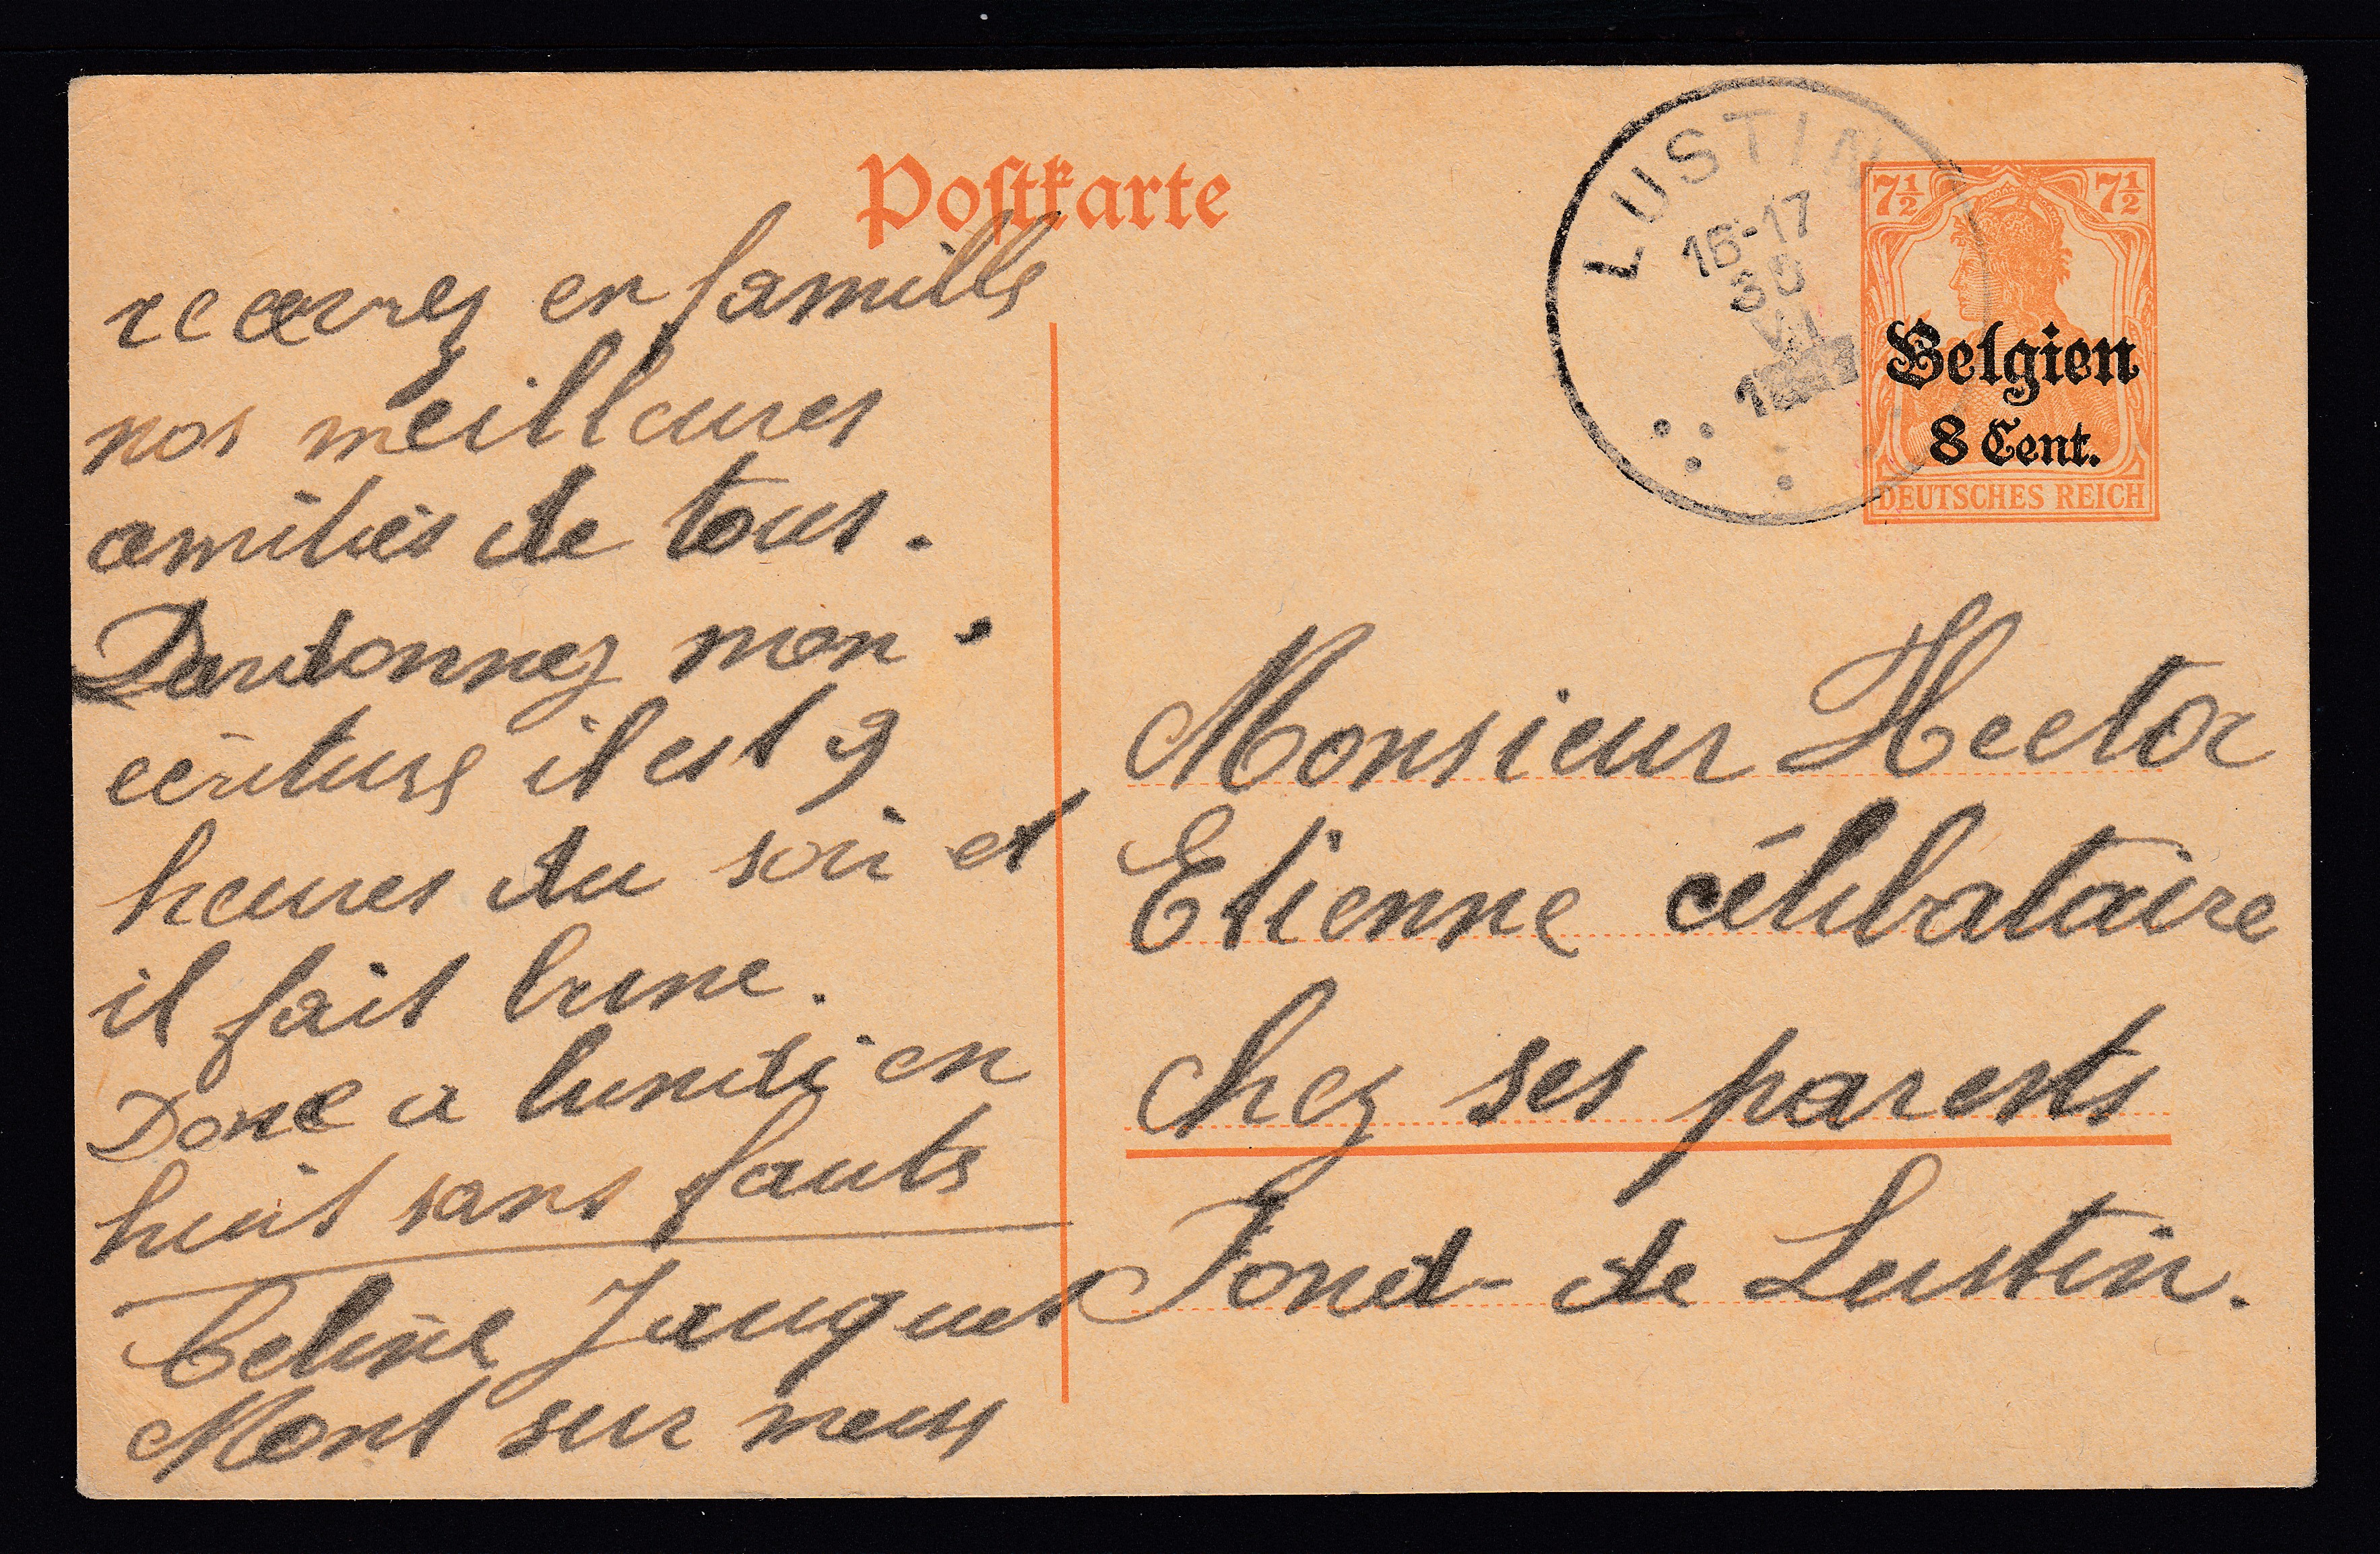 Postkarte
LUSTIN
16-17
30
VII
7½ 7½
Belgien
8 Cent.
DEUTSCHES REICH
recevez en famille
nos meilleures
amitiés de tous.
Pardonnez mon
ecriture il est 9
heures du soir et
il fait brune.
Donc a lundi en
huit sans faute
Celine Jauquet
Mont sur meuse
Monsieur Hector
Etienne célibataire
chez ses parents
Fond-de Lustin.